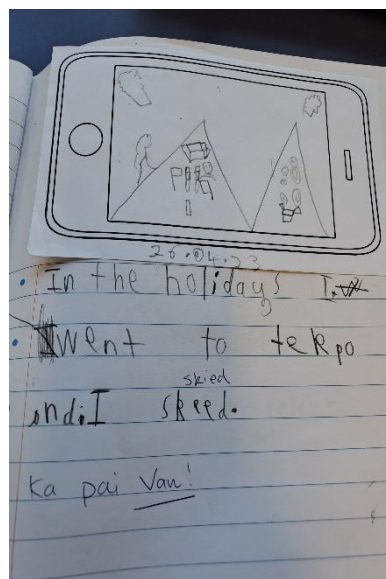 26.04.23
In the holidays I
went to tekpo
skied
and I skeed.
Ka pai Van!